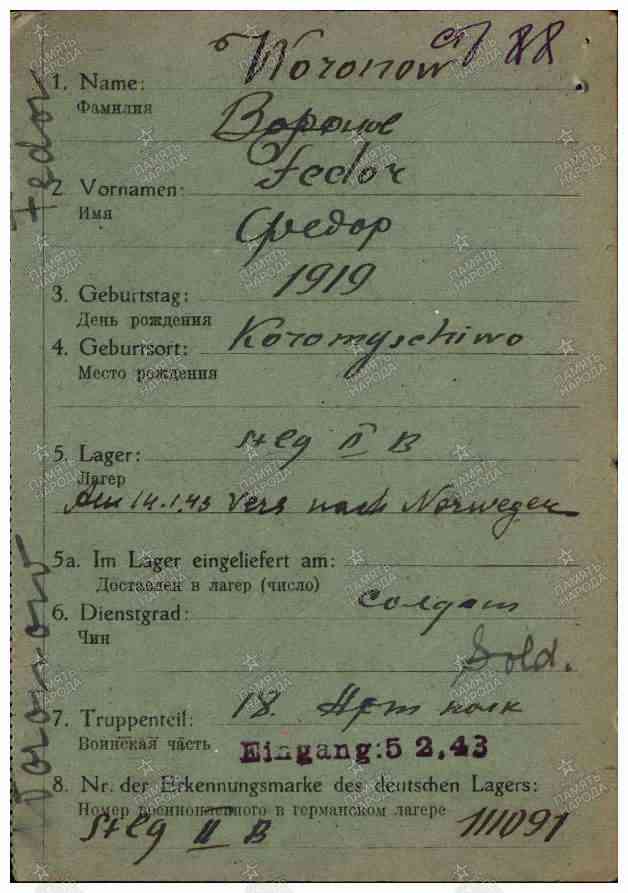 Woronow
1. Name:
Фамилия
Воронов
Fedor
2 Vornamen:
Имя
Федор
1919
3. Geburtstag:
День рождения
4. Geburtsort: Koromyschiwo
Место рождения
5. Lager: Stlg II B
Лагерь
Am 14.1.43 Vers nach Norwegen
5a. Im Lager eingeliefert am:
Доставлен в лагерь (число)
6. Dienstgrad: солдат
Чин
Sold.
7. Truppenteil: 18. Арт полк
Воинская часть Eingang: 5 2.43
8. Nr. der Erkennungsmarke des deutschen Lagers:
Номер военнопленного в германском лагере
Stlg II B 111091
Woronow Fedor
ПАМЯТЬ НАРОДА